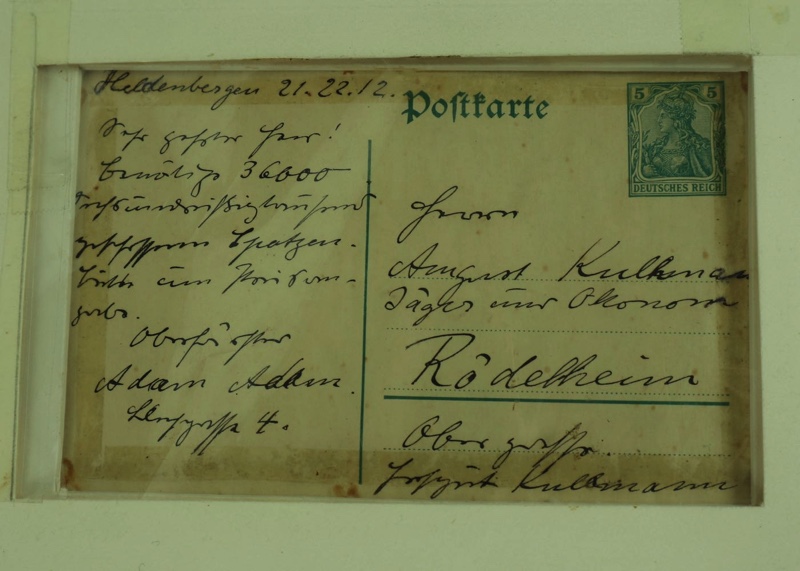 Heldenbergen 21.22.12.
Sehr geehrter Herr!
Benötige 36000
Sechsunddreißigtausend
geschossene Spatzen.
Bitte um Preisan-
gabe.
Oberförster
Adam Adam.
4.
Postkarte
5 5
DEUTSCHES REICH
Herrn
August Kullman
Jäger und Ökonom
Rödelheim
Obergasse.
Hofgut Kullmann